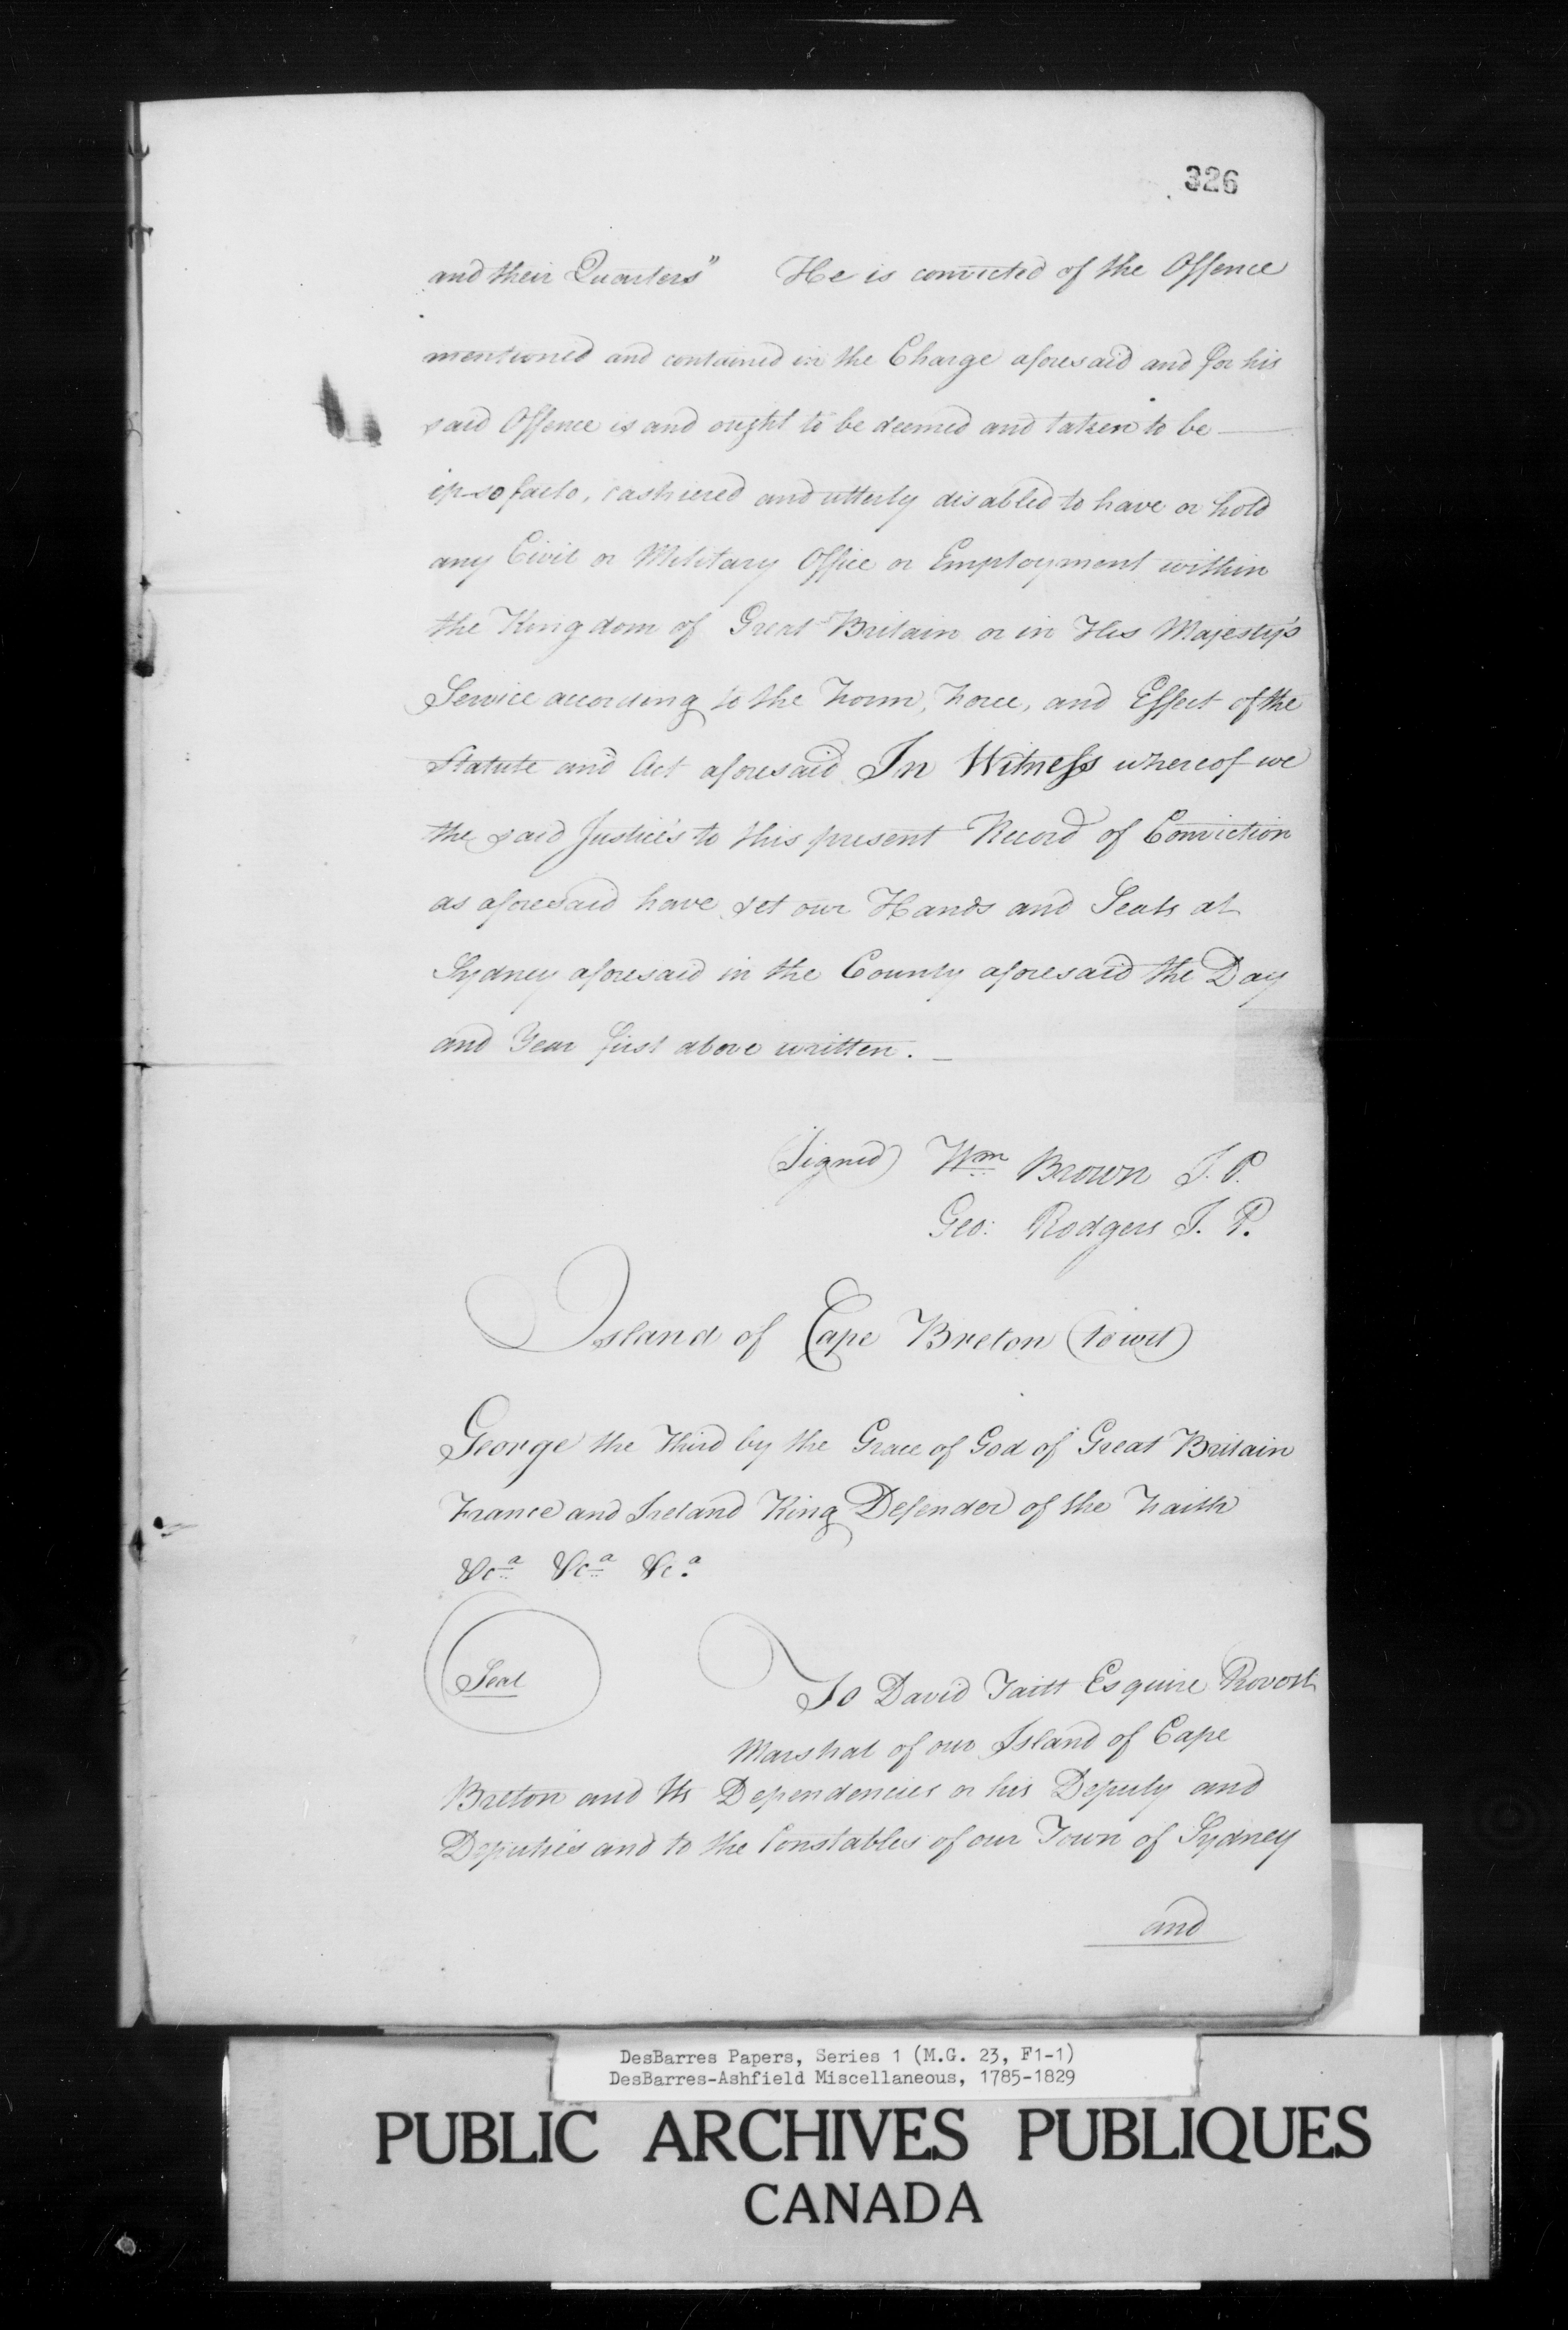 326
and their Quarters" He is convicted of the Offence
mentioned and contained in the Charge aforesaid and for his
said Offence is and ought to be deemed and taken to be —
ipso facto, cashiered and utterly disabled to have or hold
any Civil or Military Office or Employment within
the Kingdom of Great Britain or in His Majesty's
Service according to the Form, Force, and Effect of the
Statute and Act aforesaid In Witness whereof we
the said Justice's to this present Record of Conviction
as aforesaid have set our Hands and Seals at
Sydney aforesaid in the County aforesaid the Day
and Year first above written. —
(Signed) Wm Brown J. P.
Geo: Rodgers J. P.
Island of Cape Breton (to wit)
George the Third by the Grace of God of Great Britain
France and Ireland King Defender of the Faith
&ca &ca &ca
Seal
To David Taitt Esquire Provost
Marshal of our Island of Cape
Breton and Its Dependencies or his Deputy and
Deputies and to the Constables of our Town of Sydney
and
DesBarres Papers, Series 1 (M.G. 23, F1-1)
DesBarres-Ashfield Miscellaneous, 1785-1829
PUBLIC ARCHIVES PUBLIQUES
CANADA